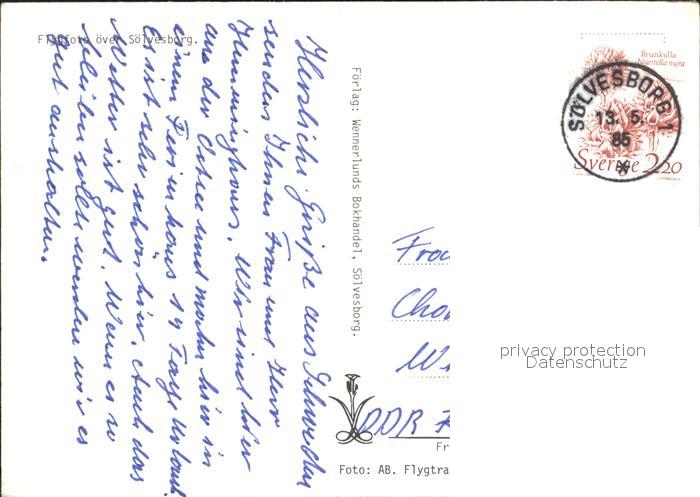 Flygfoto över Sölvesborg.
Herzliche Grüße aus Schweden
senden Ihnen Frau und Herr
Hemminghaus. Wir sind hier
an der Ostsee und machen hier in
einem Ferienhaus 14 Tage Urlaub.
Es ist sehr schön hier. Auch das
Wetter ist gut. Wenn es so
bleiben sollte werden wir es
gut aushalten.
Förlag: Wennerlunds Bokhandel, Sölvesborg.
Brunkulla
Nigritella nigra
SÖLVESBORG 1
13. 5.
85
Sverige 2.20
Frau
DDR
Fr
Foto: AB. Flygtra
privacy protection
Datenschutz